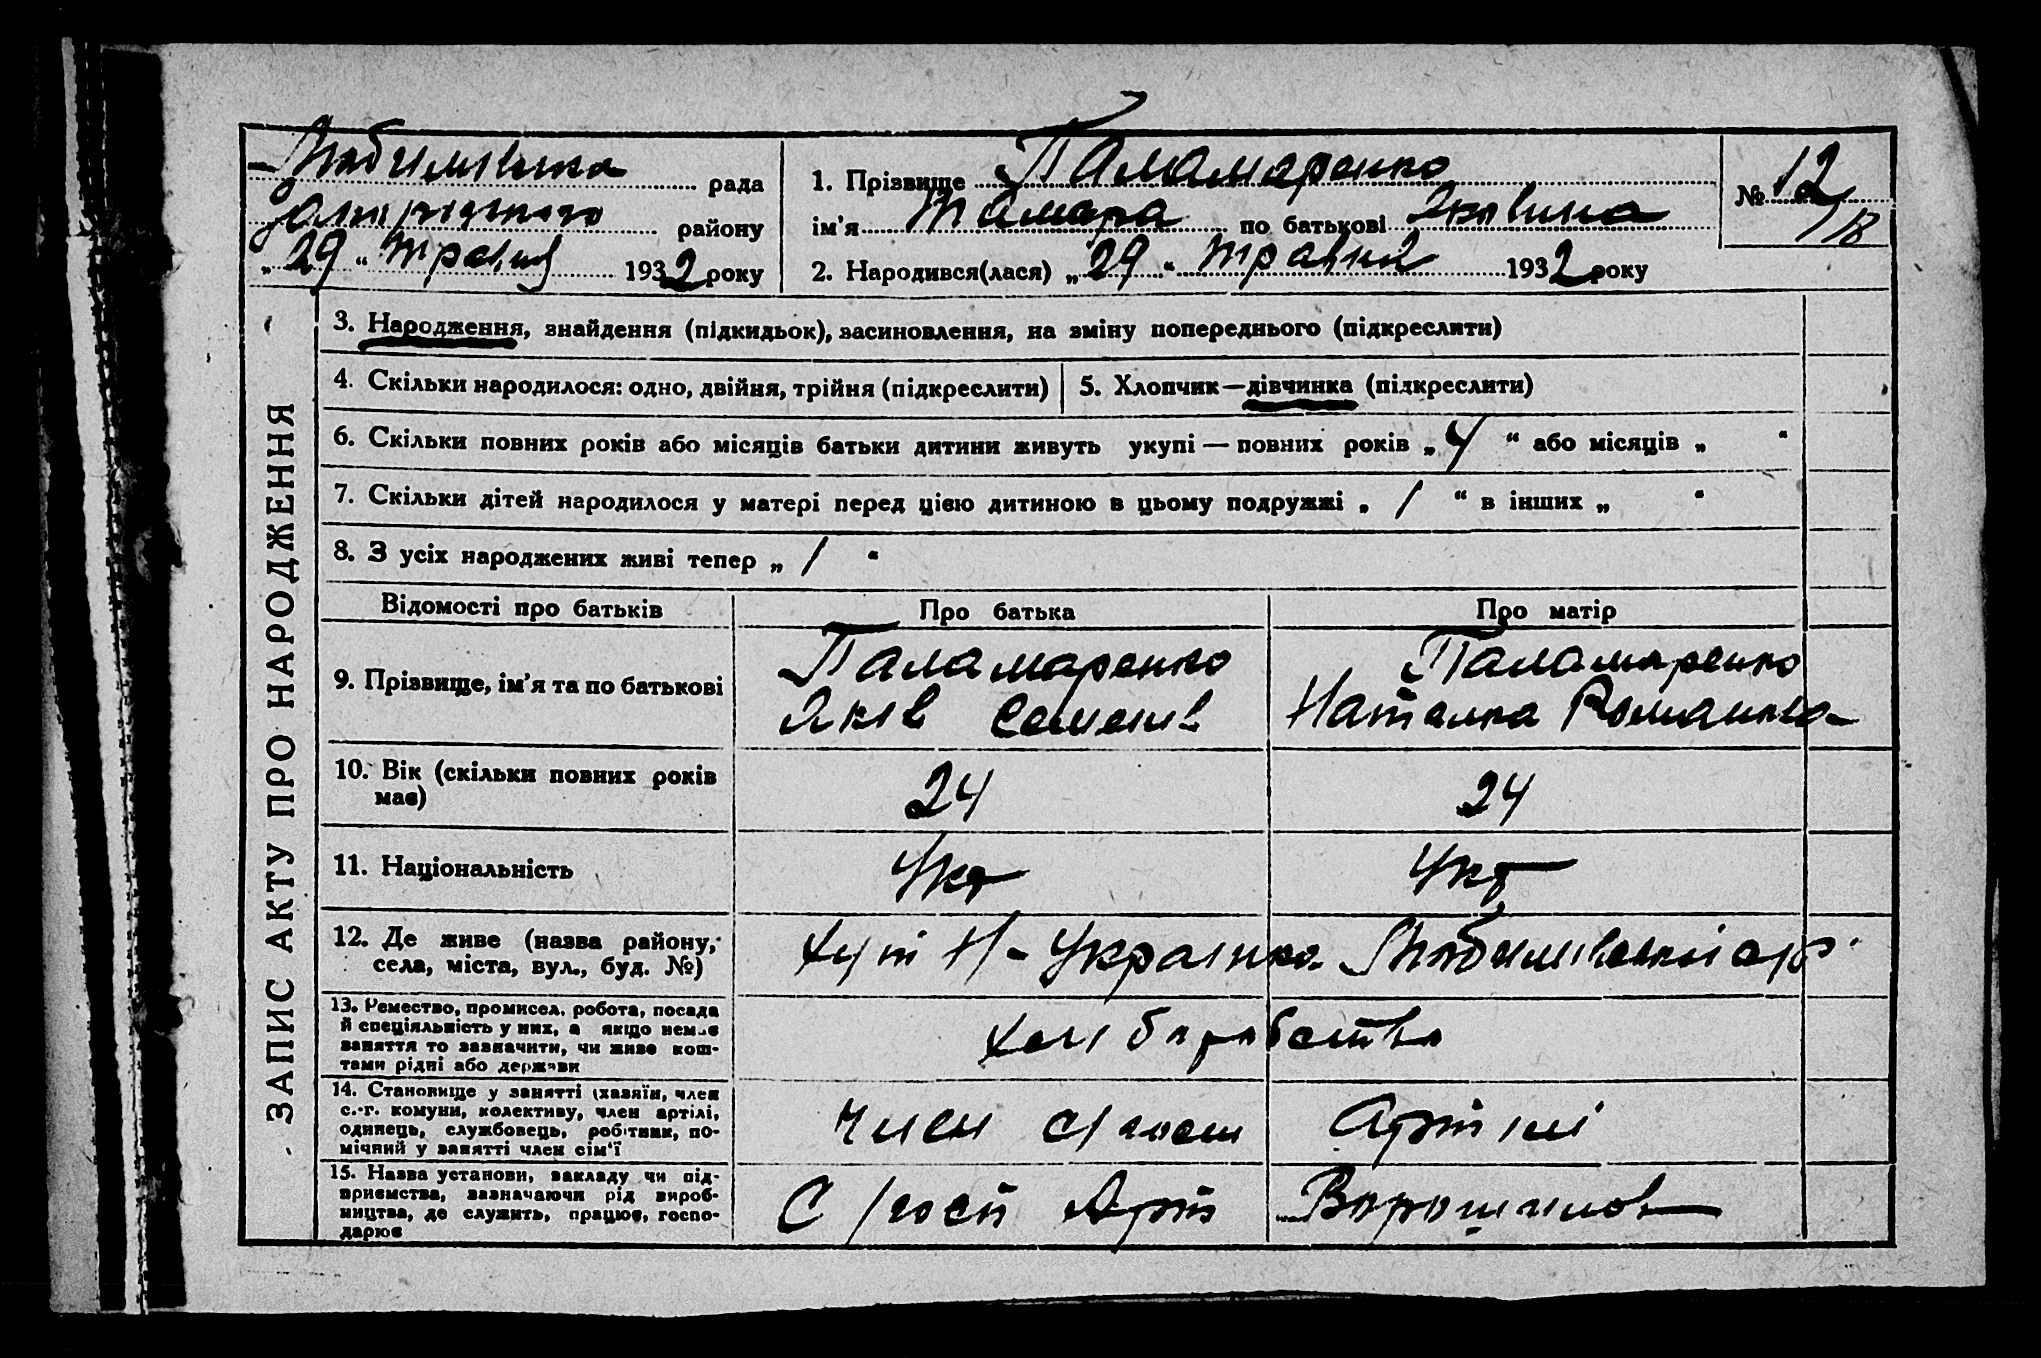 Любимівська рада
Запорізького району
„ 29 “ травня 1932 року
1. Прізвище Паламаренко
ім'я Тамара по батькові Яківна
2. Народився(лася) „ 29 “ травня 1932 року
№ 12/18
ЗАПИС АКТУ ПРО НАРОДЖЕННЯ
3. Народження, знайдення (підкидьок), засиновлення, на зміну попереднього (підкреслити)
4. Скільки народилося: одно, двійня, трійня (підкреслити)
5. Хлопчик—дівчинка (підкреслити)
6. Скільки повних років або місяців батьки дитини живуть укупі — повних років „ 4 “ або місяців „ “
7. Скільки дітей народилося у матері перед цією дитиною в цьому подружжі „ 1 “ в інших „ “
8. З усіх народжених живі тепер „ 1 “
Відомості про батьків
Про батька
Про матір
9. Прізвище, ім'я та по батькові
Паламаренко
Яків Семенів
Паламаренко
Наталка Романівна
10. Вік (скільки повних років
має)
24
24
11. Національність
Укр
Укр
12. Де живе (назва району,
села, міста, вул., буд. №)
Хут Н-Українка Любимівської с/р
13. Ремество, промисел, робота, посада
й спеціяльність у них, а якщо немає
заняття то зазначити, чи живе кош-
тами рідні або держави
хліборобство
14. Становище у занятті (хазяїн, член
с.-г. комуни, колективу, член артілі,
одинець, службовець, робітник, по-
мічний у занятті член сім'ї
Член с/госп Артілі
15. Назва установи, закладу чи під-
приємства, зазначаючи рід вироб-
ництва, де служить, працює, госпо-
дарює
С/госп Арт Ворошилов